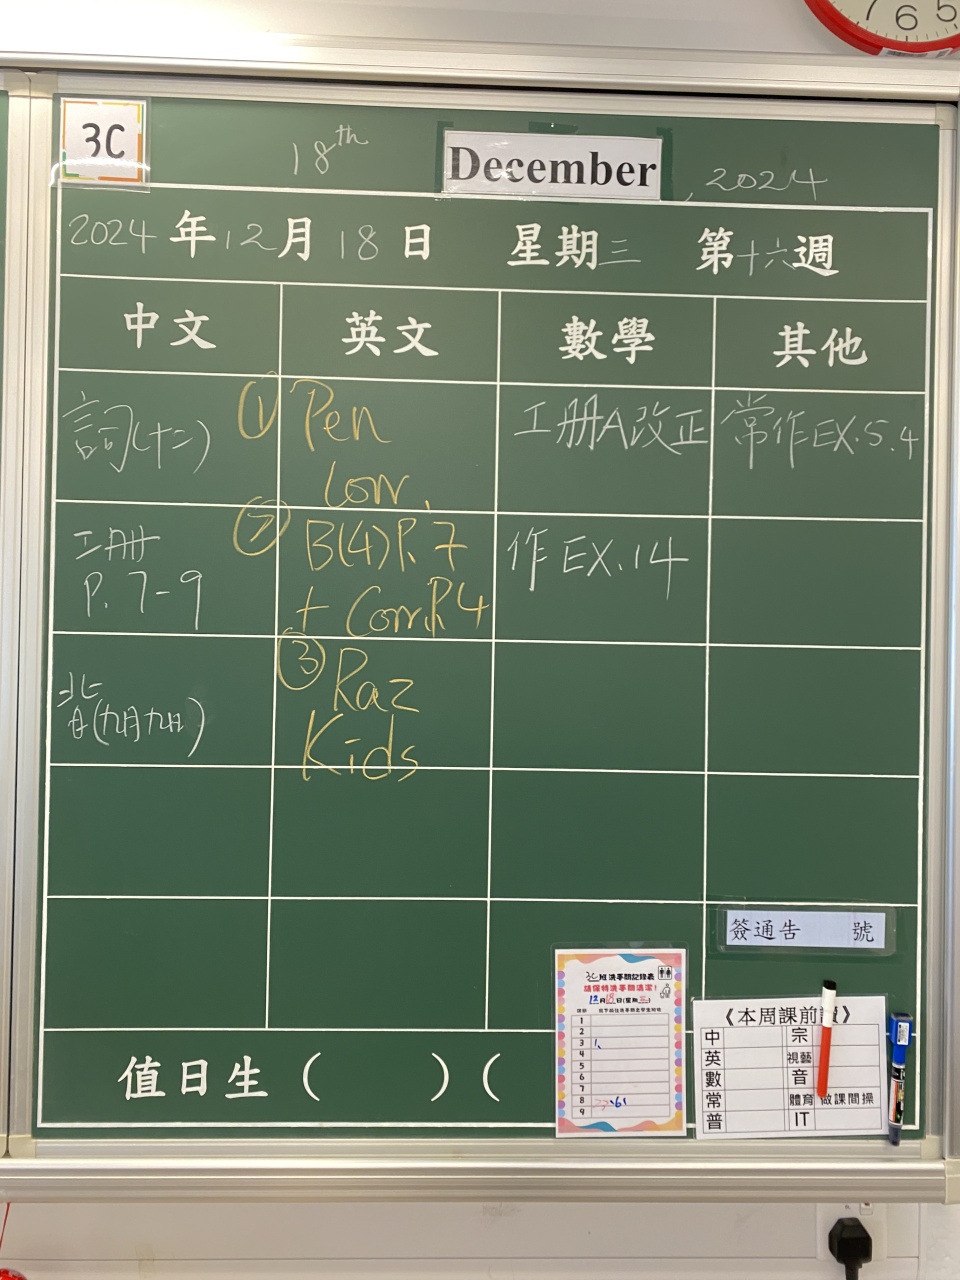 7 6 5
3C
18th December, 2024
2024年12月18日 星期三 第十六週
中文 英文 數學 其他
詞(十二)
① Pen
Corr.
工册A改正
常作EX.5.4
工册
P.7-9
② B(4)P.7
+ Corr.P.4
作EX.14
背(九月九日)
③ Raz
Kids
簽通告 號
值日生 ( ) (
3C班洗手間記錄表
請保持洗手間清潔!
12月18日(星期三)
1
2
3 1、
4
5
6
7
8
9
《本周課前讀》
中 宗
英 視藝
數 音
常 體育 做課間操
普 IT